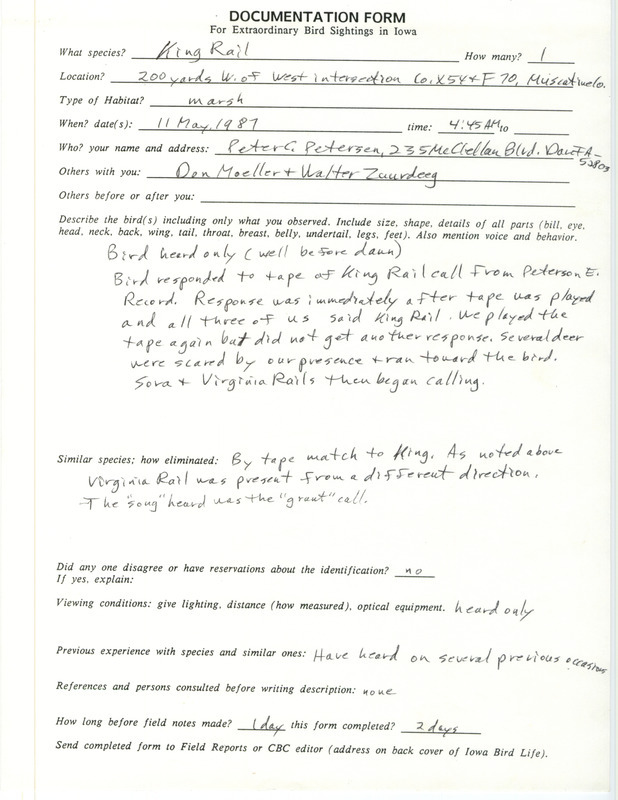 DOCUMENTATION FORM
For Extraordinary Bird Sightings in Iowa
What species? King Rail How many? 1
Location? 200 yards W. of West intersection Co. X54 + F 70, Muscatine Co.
Type of Habitat? marsh
When? date(s): 11 May, 1987 time: 4:45 AM to
Who? your name and address: Peter C. Petersen, 235 McClellan Blvd. Dav. IA-
52803
Others with you: Don Moeller + Walter Zuurdeeg
Others before or after you:
Describe the bird(s) including only what you observed. Include size, shape, details of all parts (bill, eye,
head, neck, back, wing, tail, throat, breast, belly, undertail, legs, feet). Also mention voice and behavior.
Bird heard only (well before dawn)
Bird responded to tape of King Rail call from Peterson E.
Record. Response was immediately after tape was played
and all three of us said King Rail. We played the
tape again but did not get another response. Several deer
were scared by our presence + ran toward the bird.
Sora + Virginia Rails then began calling.
Similar species; how eliminated: By tape match to King. As noted above
Virginia Rail was present from a different direction.
The "song" heard was the "grunt" call.
Did any one disagree or have reservations about the identification? no
If yes, explain:
Viewing conditions: give lighting, distance (how measured), optical equipment. heard only
Previous experience with species and similar ones: Have heard on several previous occasions
References and persons consulted before writing description: none
How long before field notes made? 1 day this form completed? 2 days
Send completed form to Field Reports or CBC editor (address on back cover of Iowa Bird Life).